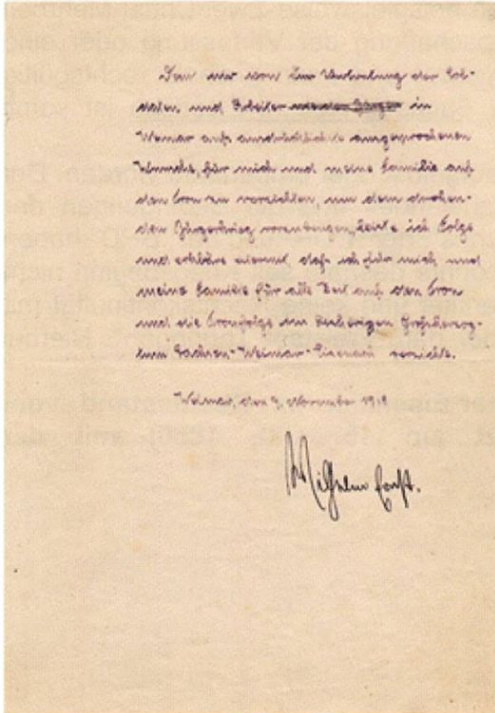 Dem mir von der Vertretung der Sol-
daten und Arbeiter in
Weimar aufs ausdrücklichste ausgesprochenen
Wunsche, für mich und meine Familie auf
den Tron zu verzichten, um dem drohen-
den Bürgerkrieg vorzubeugen, leiste ich Folge
und erkläre hiermit, daß ich für mich und
meine Familie für alle Zeit auf den Tron
und die Tronfolge im bisherigen Großherzog-
tum Sachsen-Weimar-Eisenach verzichte.
Weimar, den 9. November 1918
Wilhelm Ernst.